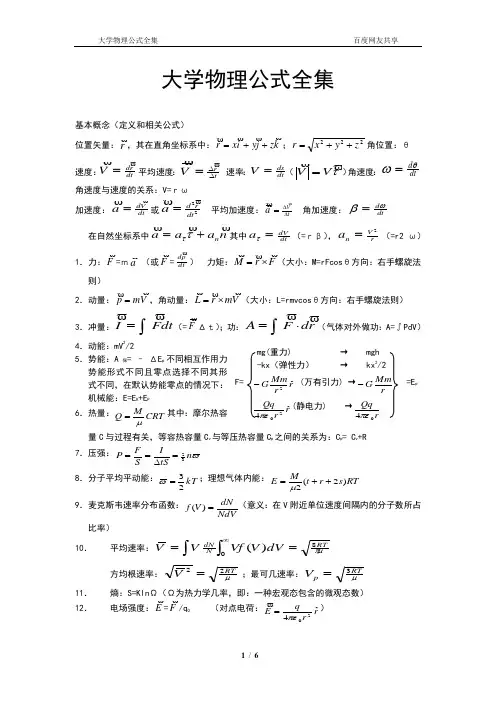 大学物理公式全集 百度网友共享
大学物理公式全集
基本概念(定义和相关公式)
位置矢量:r⃗,其在直角坐标系中:r⃗=xi⃗+yj⃗+zk⃗;r=√(x²+y²+z²) 角位置:θ
速度:V⃗=dr⃗/dt 平均速度:V⃗=Δr⃗/Δt 速率:V=ds/dt(|V⃗|=V)角速度:ω=dθ/dt
角速度与速度的关系:V=rω
加速度:a⃗=dV⃗/dt或a⃗=d²r⃗/dt² 平均加速度:a⃗=ΔV⃗/Δt 角加速度:β=dω/dt
在自然坐标系中a⃗=a_τ τ⃗+a_n n⃗其中a_τ=dV/dt(=rβ),a_n=V²/r(=r2 ω)
1.力:F⃗=ma⃗ (或F⃗=dp⃗/dt) 力矩:M⃗=r⃗×F⃗(大小:M=rFcosθ方向:右手螺旋法
则)
2.动量:p⃗=mV⃗,角动量:L⃗=r⃗×mV⃗(大小:L=rmvcosθ方向:右手螺旋法则)
3.冲量:I⃗=∫F⃗dt(=F⃗Δt);功:A=∫F⃗·dr⃗(气体对外做功:A=∫PdV)
4.动能:mV²/2
5.势能:A保= – ΔEp不同相互作用力
势能形式不同且零点选择不同其形
式不同,在默认势能零点的情况下:
机械能:E=EK+EP
mg(重力) → mgh
-kx(弹性力) → kx²/2
F= -G Mm/r² r̂ (万有引力) → -G Mm/r =Ep
Qq/4πε₀r² r̂(静电力) → Qq/4πε₀r
6.热量:Q=M/μ CRT其中:摩尔热容
量C与过程有关,等容热容量Cv与等压热容量Cp之间的关系为:Cp= Cv+R
7.压强:P=F/S=I/ΔtS=2/3 nϖ
8.分子平均平动能:ϖ=3/2 kT;理想气体内能:E=M/μ2 (t+r+2s)RT
9.麦克斯韦速率分布函数:f(V)=dN/NdV(意义:在V附近单位速度间隔内的分子数所占
比率)
10. 平均速率:V̄=∫V dN/N ∫₀^∞ Vf(V)dV=√(8RT/πμ)
方均根速率:√V̄²=√(2RT/μ);最可几速率:Vp=√(3RT/μ)
11. 熵:S=KlnΩ(Ω为热力学几率,即:一种宏观态包含的微观态数)
12. 电场强度:E⃗=F⃗/q₀ (对点电荷:E⃗=q/4πε₀r² r̂)
1 / 6